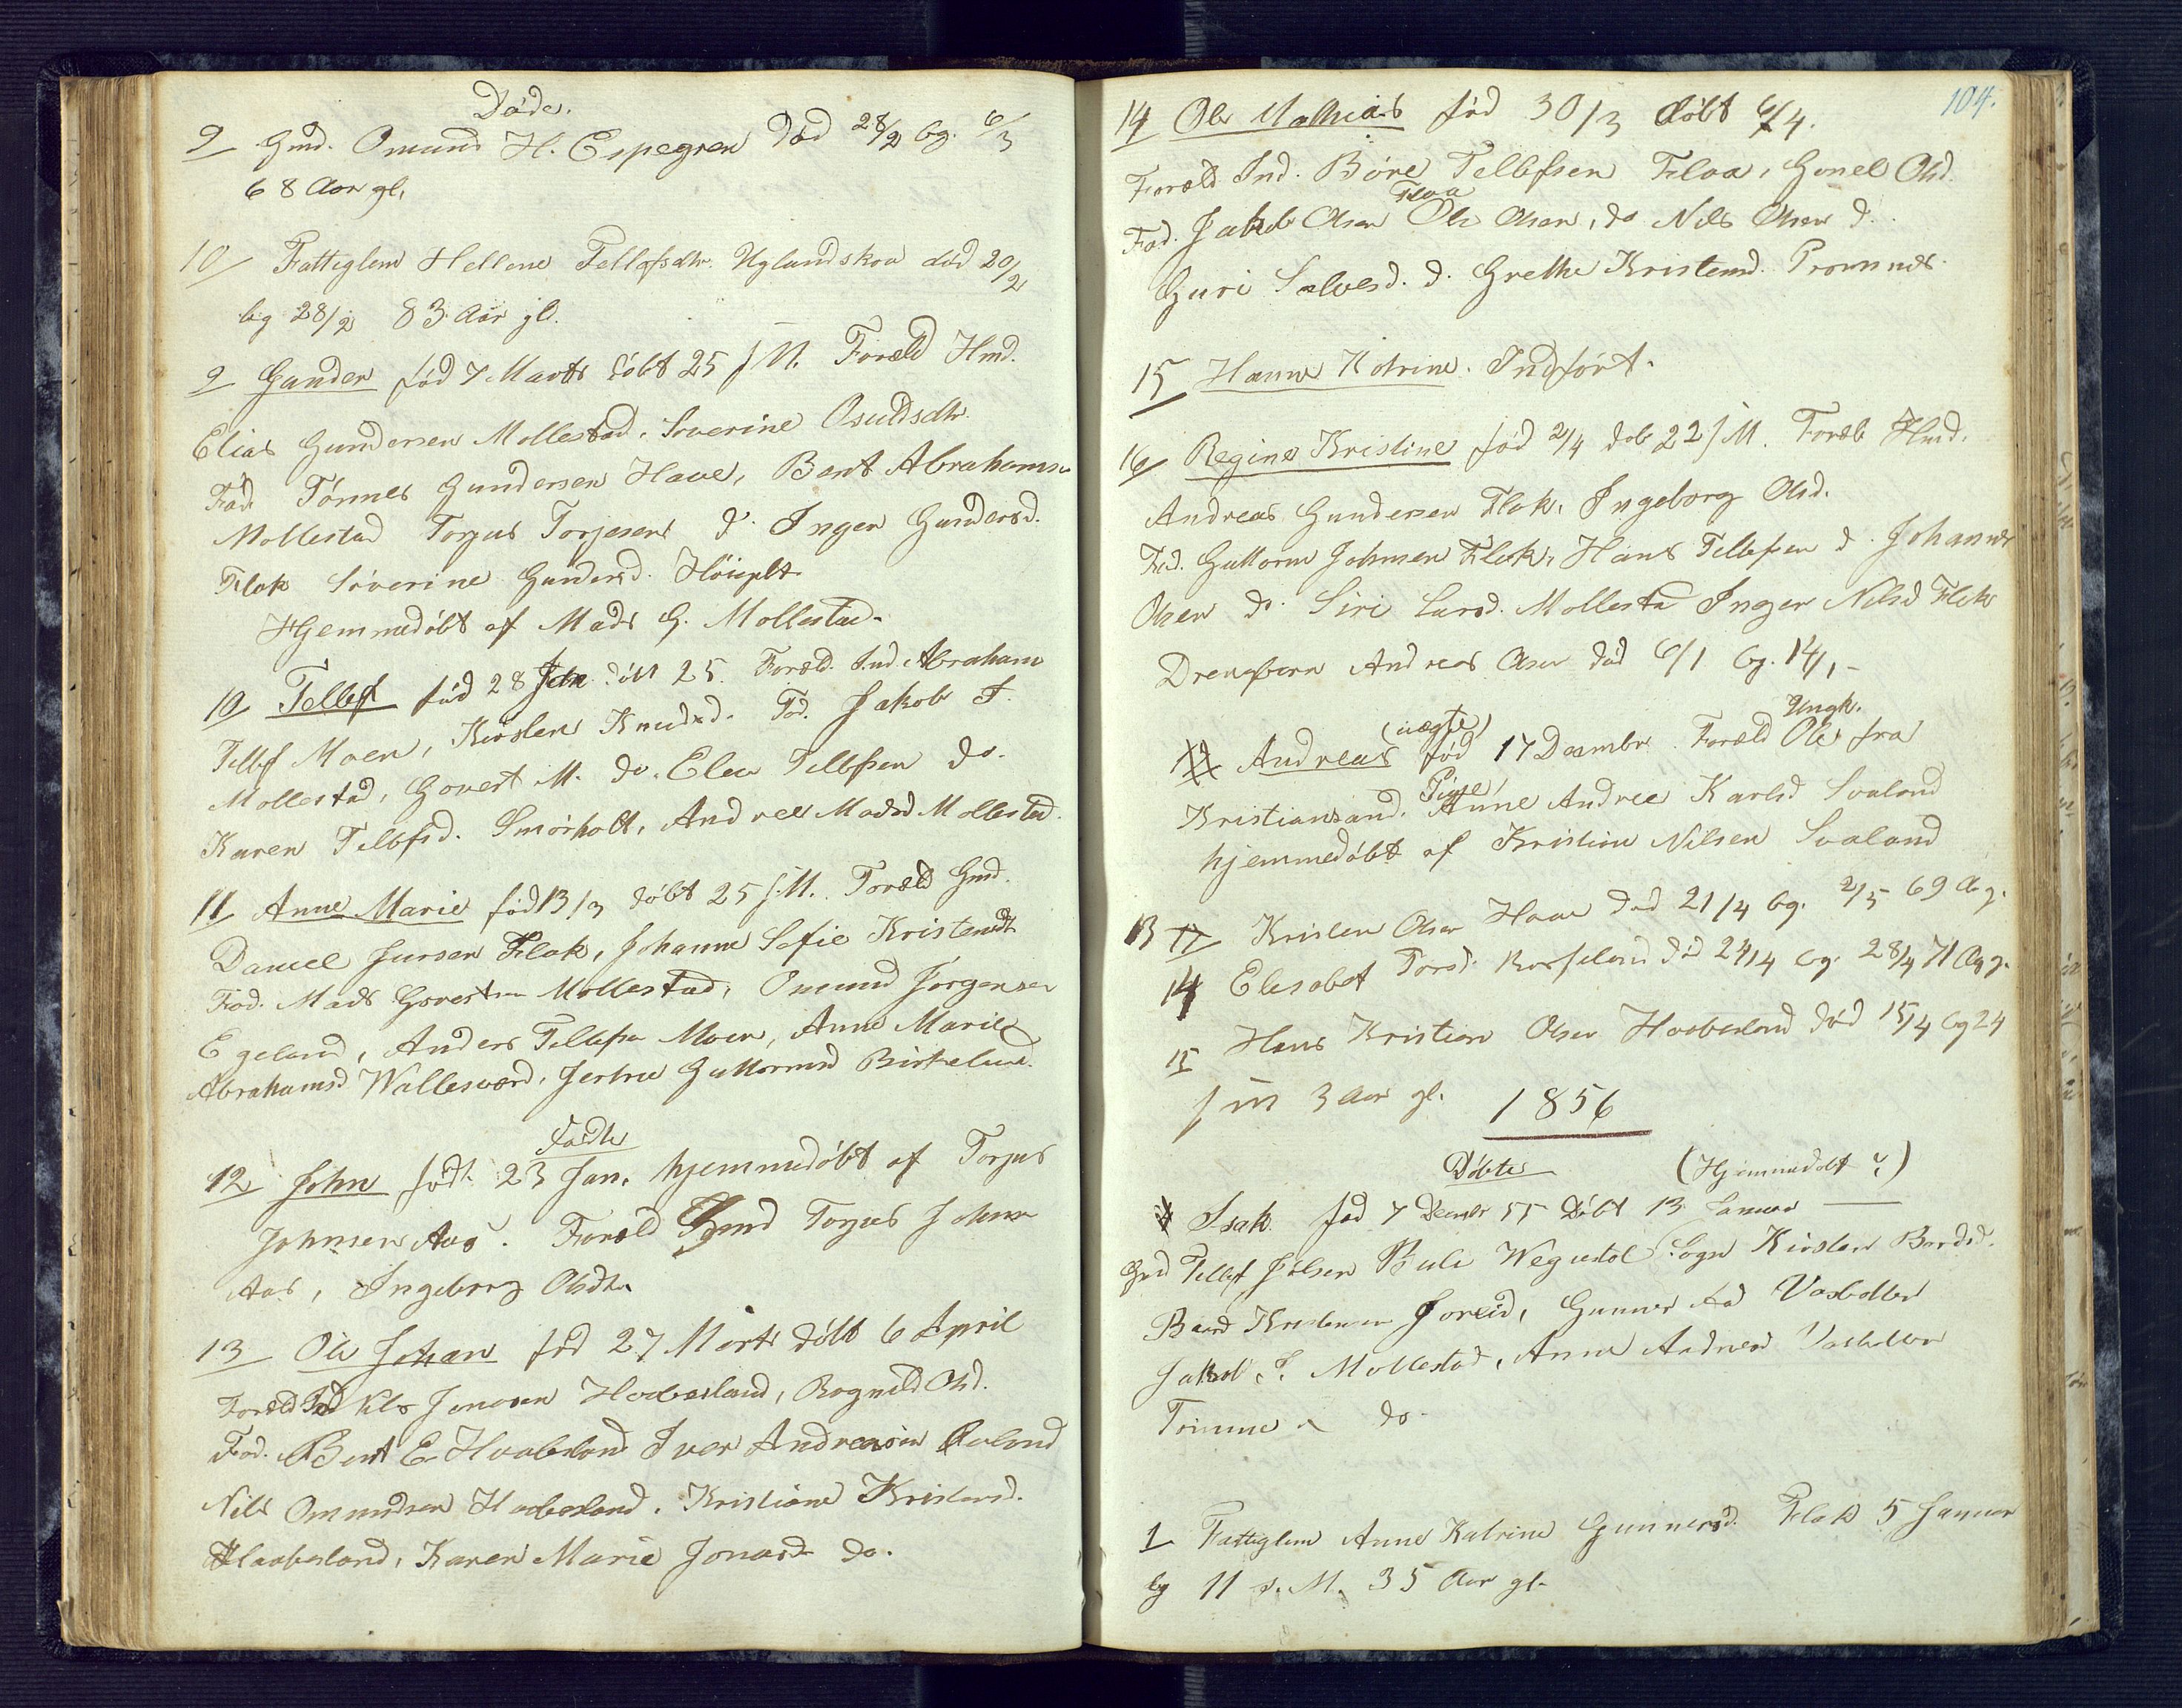 Døde.
9 Gmd. Omund H. Espegren død 28/2 bg. 6/3
68 Aar gl.
10/ Fattiglem Hellene Tellefsdtr. Uglandskov død 20/2
bg 28/2 83 Aar gl.
9 Gunder fød 7 Marts døbt 25 s M. Foræld Hmd.
Elias Gundersen Mollestad. Severine Osuldsdtr.
Fad. Tønnes Gundersen Have, Bent Abrahams.
Mollestad Torjus Torjesen d. Inger Gundersd.
Flak Severine Gundersd.
Hjemmedøbt af Mads G. Mollestad.
10 Tellef fød 28 døbt 25. Foræld. Ind. Abraham
Tellefs Moen, Kirsten Knudsd. Fad. Jakob T.
Mollestad, Govert M. do. Elen Tellefsen do.
Karen Tellefsd. Smørholt, Andrea Madsd Mollestad.
11 Anne Marie fød 13/3 døbt 25 s.M. Foræld Gmd.
Daniel Jensen Flak, Johanne Sofie Kristensdt
Fad. Mads Govertsen Mollestad, Omund Jørgensen
Egeland, Anders Tellefsen Moen, Anne Marie
Abrahamsd Wallesværd, Guttormsd Birkeland.
Fødte
12 John født 23 Jan. hjemmedøbt af Torjus
Johnsen Aas. Foræld Gmd Torjus Johnsen
Aas, Ingeborg Olsdtr.
13 Ole Johan fød 27 Marts døbt 6 April
Foræld Ind Nils Jonasen Haabesland, Ragnild Olsd.
Fad. Bent E. Haabesland Iver Andreasen
Nils Omundsen Haabesland. Kristiane Kristensd.
Haabesland, Karen Marie Jonasd. do.
104.
14 Ole Mathias fød 30/3 døbt 6/4.
Foræld Ind. Børe Tellefsen Flaa, Gonel Olsd.
Flaa
Fad. Jakob Olsen Ole Olsen, do Nils Olsen d.
Guri Salvesd. d. Grethe Kristensd.
15 Hanne Katrine. Indført.
16 Regine Kristine fød 2/4 døb 22 s M. Foræld Hmd.
Andreas Gundersen Flak. Ingeborg Olsd.
Fad. Guttorm Johnsen Flak, Hans Tellefsen d. Johannes
Olsen do. Siri Larsd. Mollestad Inger Nilsd Flak
Drengbarn Andreas Olsen død 6/1 bg. 14/1 -
Ungk.
(uægte)
Andreas fød 17 December Foræld Ole fra
Pige
Kristiansand, Anne Andrea Karlsd Svaland
hjemmedøbt af Kristine Nilsen Svaland
13 17 Kristen Olsen Have død 21/4 bg. 2/5 69 A g.
14 Elisabet død 24/4 bg. 28/4 71 A g.
15 Hans Kristian Olsen Haabesland død 15/4 bg 24
s m 3 Aar gl.
1856
Døbte (Hjemmedøbt?)
Isak fød 7 Decembr 55 døbt 13 Januar
Gmd Tellef Jølsen Wegusdal Sogn Kirsten Bordsd.
Baard Kristensen, Gunner
Jakob T. Mollestad, Anne
do.
1 Fattiglem Anne Katrine Gunnersd. Flak 5 Januar
bg 11 s. M. 35 Aar gl.